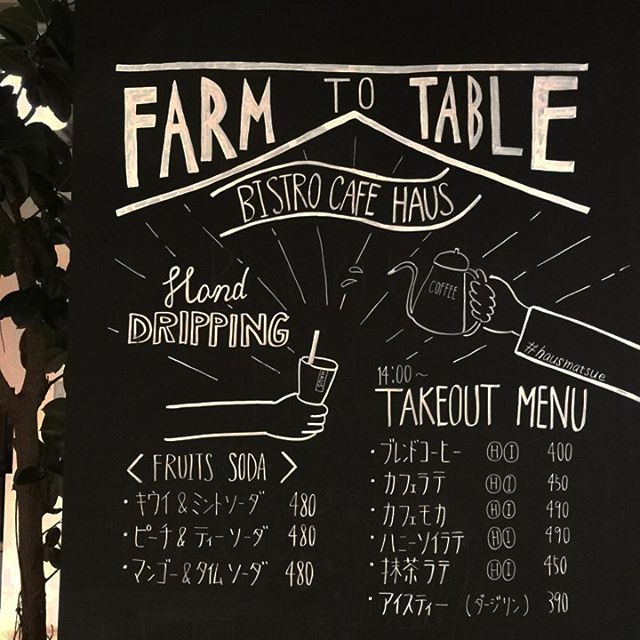 FARM TO TABLE
BISTRO CAFE HAUS
Hand
DRIPPING
COFFEE
#hausmatsue
HAUS
<FRUITS SODA>
・キウイ&ミントソーダ 480
・ピーチ&ティーソーダ 480
・マンゴー&タイムソーダ 480
14:00~
TAKEOUT MENU
・ブレンドコーヒー Ⓗ Ⓘ 400
・カフェラテ Ⓗ Ⓘ 450
・カフェモカ Ⓗ Ⓘ 490
・ハニーソイラテ Ⓗ Ⓘ 490
・抹茶ラテ Ⓗ Ⓘ 450
・アイスティー (ダージリン) 390